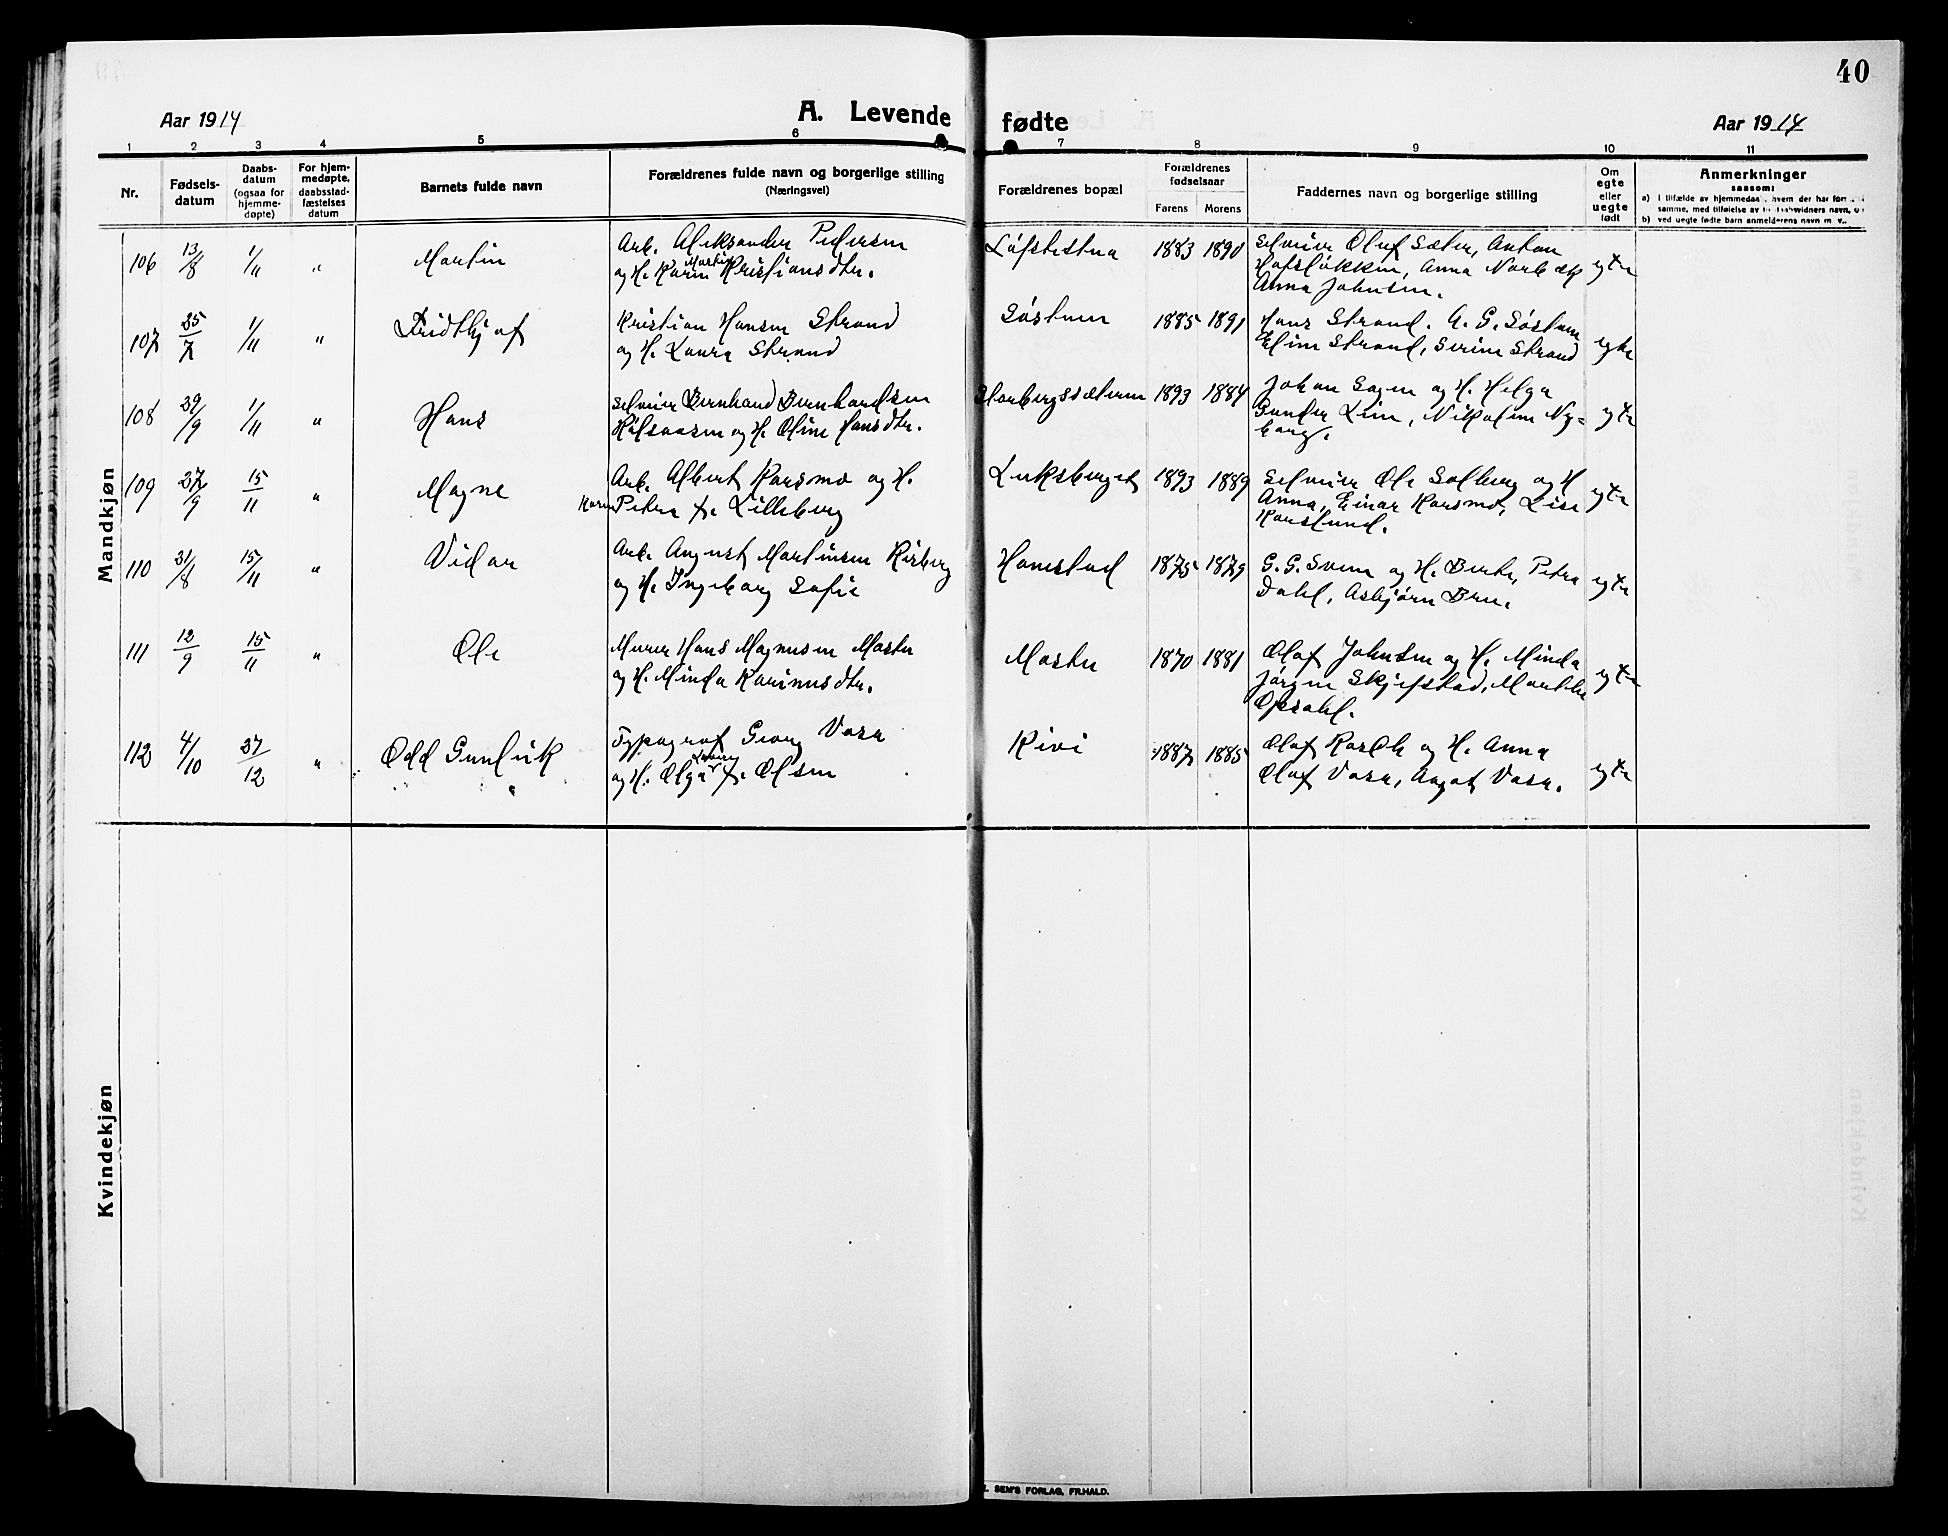 40
Aar 1914
A. Levende fødte
Aar 1914
1 2 3 4 5 6 7 8 9 10 11
Nr.
Fødsels-
datum
Daabs-
datum
(ogsaa for
hjemme-
døpte)
For hjem-
medøpte,
daabsstad-
fæstelses
datum
Barnets fulde navn
Forældrenes fulde navn og borgerlige stilling
(Næringsvei)
Forældrenes bopæl
Forældrenes
fødselsaar
Farens Morens
Faddernes navn og borgerlige stilling
Om
egte
eller
uegte
født
Anmerkninger
saasom:
a) I tilfælde av hjemmedaab, hvem der har
samme, med tilføielse av
b) ved uegte fødte barn anmelderens navn m. v.
Mandkjøn
106 13/8 1/11 " Martin
Arb. Aleksander Pedersen
og H. Karin Martin Kristiansdtr.
Løfstestua 1883 1890
Selveier Oluf Sæter, Anton
Hofsløkken, Anna Norbæk
Anna Johnsen.
egte
107 25/7 1/11 " Fridthjof
Kristian Hansen Strand
og H. Laura Strand
Sóstuen 1885 1891
Hans Strand. A. G. Sóstuen
Eline Strand, Serine Strand
egte
108 29/9 1/11 " Hans
Selveier Bernhard Bernhardsen
og H. Oline Hansdtr.
Storbergssæteren 1893 1884
Johan Sagen og H. Helga
Gunder Lien, Nikoline Ny=
borg.
egte
109 27/9 15/11 " Magne
Arb. Albert Karsmo og H.
Karen Petra f. Lilleberg
Luksberget 1893 1889
Selveier Ole Solberg og H
Anna, Einar Karsmo, Lise
Karslund.
egte
110 31/8 15/11 " Vidar
Arb. August Martinsen Risberg
og H. Ingeborg Sofie
Hamstad 1875 1879
G. G. Sveen og H. Berte, Petra
Dahl, Asbjørn Bru.
egte
111 12/9 15/11 " Ole
Murer Hans Magnusen Moste
og H. Minda Karinusdtr.
Moste 1870 1881
Olaf Johnsen og H. Minda
Jørgen Skjefstad, Marthe
Opsahl.
egte
112 4/10 27/12 " Odd Gunleik
Typograf Georg Vasa
og H. Olga f. Olsen
Kivi 1887 1885
Olaf Rasch og H. Anna
Olaf Vasa, Aagot Vasa.
egte
Kvindekjøn
SEM'S FORLAG, FR.HALD.